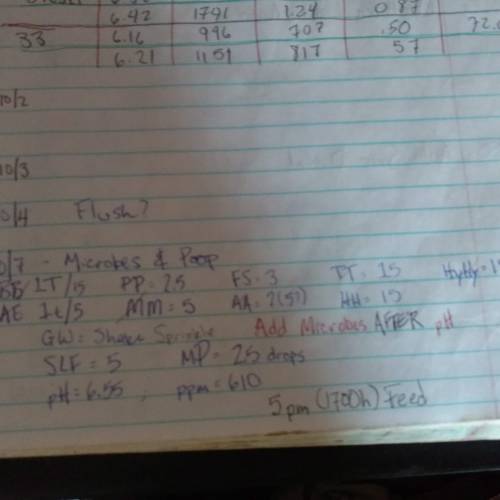 6.42 1791 1.24 0.87
33 6.16 996 707 .50
6.21 1151 817 57
10/2
10/3
0/4 Flush?
0/7 - Microbes & Poop
BB 1T/15 PP = 25 FS = 3 TT = 15
AE 1t/5 MM = 5 AA = 2(5?) HH = 15
GW = Sprinkle Add Microbes AFTER pH
SLF = 5 MP = 25 drops
pH = 6.55, ppm = 610
5pm (1700h) Feed